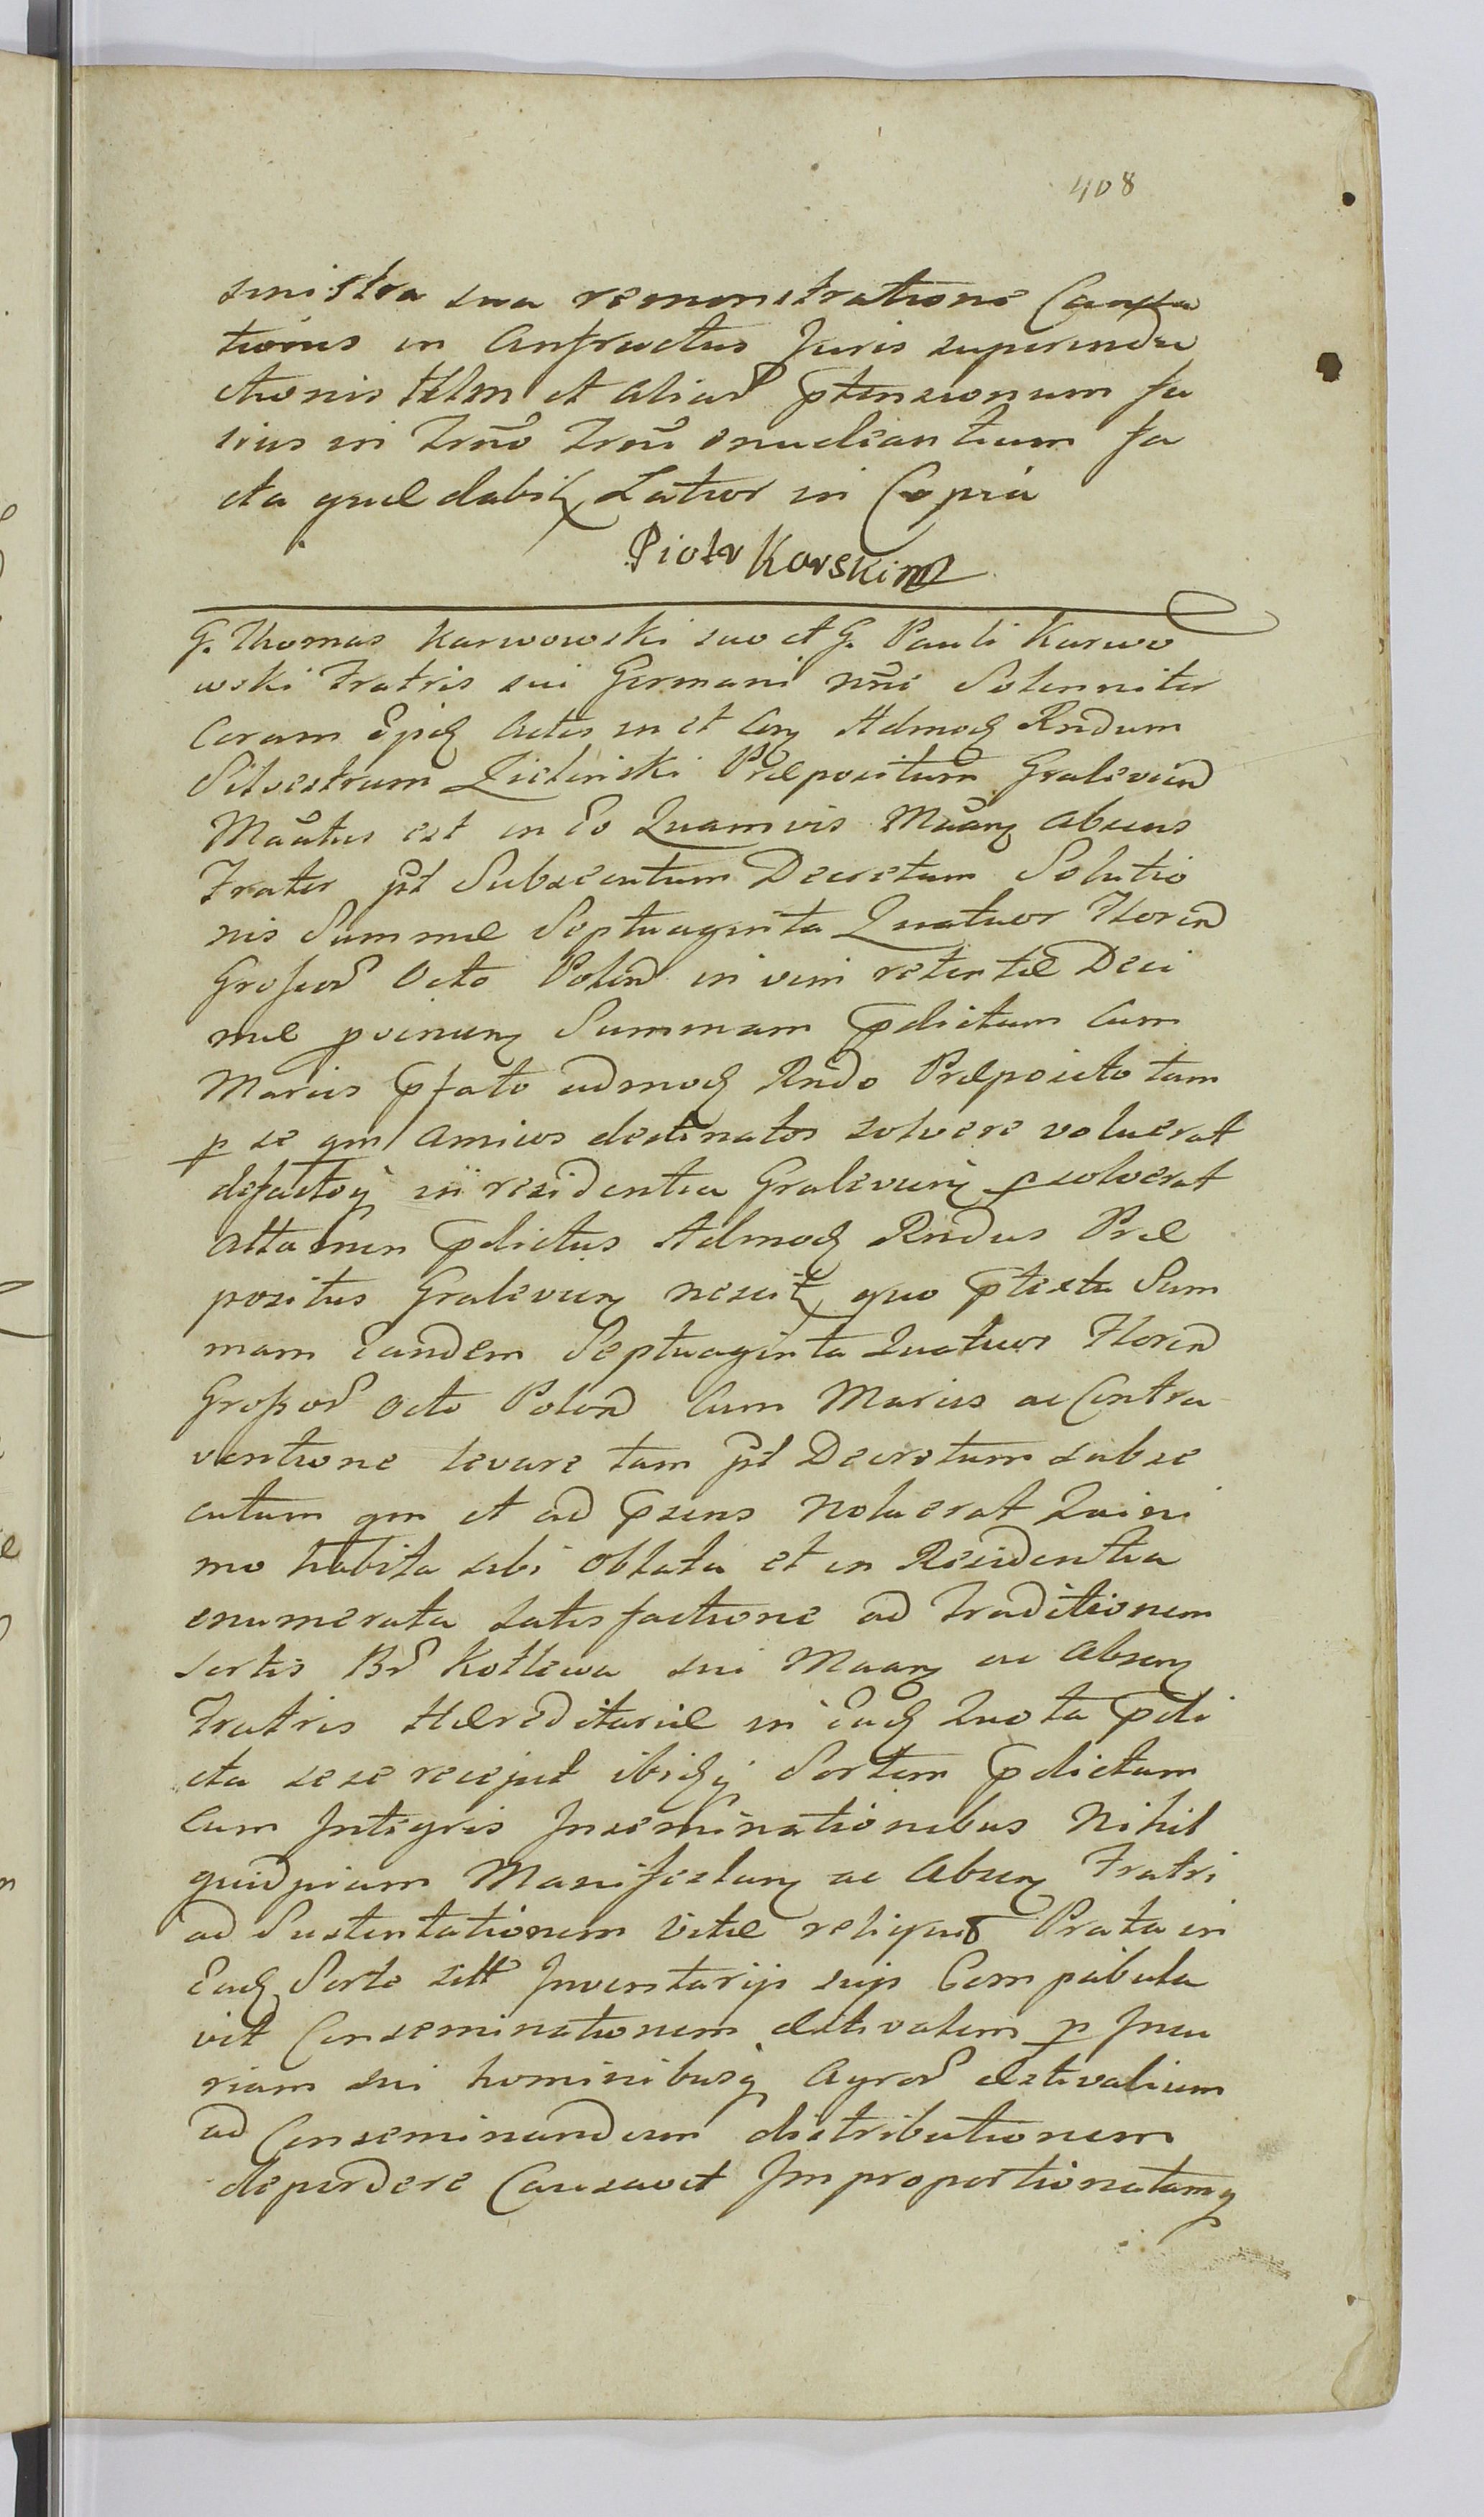 408
sinistra sua remonstratione Causa
tionis in Anfractus Juris superindu
ctionis Hlm et aliar ptensionum fu
sius in Trno Trni enudeantium fa
cta quæ dabit Lator in Copia
Piotr Karski mp
G. Thomas Karwowski suo et G. Pauli Karwo
wski Fratris sui Germani nne Solenniter
Coram Ejsdq Actis in et Con Admod Rndum
Silvestrum Zielinski Præpositum Gralevien
Mautus est in Eo Quamvis Muanq absens
Frater pst Subsecutum Decretum Solutio
nis Summæ Septuaginta Quatuor Floren
Grossor Octo Polon in vim retentæ Deci
mæ pvenien Summam pdictam Cum
Marcis pfato admod Rndo Præposito tam
p se qm Amicos destinatos solvere voluerat
defactoq in residentia Gralevien psolverat
Attamen pdictus Admod Rndus Præ
positus Gralevien nescit quo ptextu Sum
mam Eandem Septuaginta Quatuor Floren
Grossor Octo Polon Cum Marcis ac Contra
ventione levare tam pst Decretum subse
cutum qm et ad psens noluerat Quini
mo habita sibi oblata et in Residentia
enumerata satisfactione ad Traditionem
sortis Br Kotlewa sui Muanq ac Absen
Fratris Hæreditariæ in Eadq Quota pdi
cta sese recepit ibidq Sortem pdictam
Cum Integris Inseminationibus Nihil
quidpiam Manifestanq ac Absen Fratri
ad Sustentationem Vitæ reliquit Prata in
Eadq Sorte sitt Inventarijs suis Compabula
vit Conseminationem æstivalem p Incu
riam sui hominibusq Agror æstivalium
ad Conseminandum distributionem
deperdere Causavit Improportionatamq